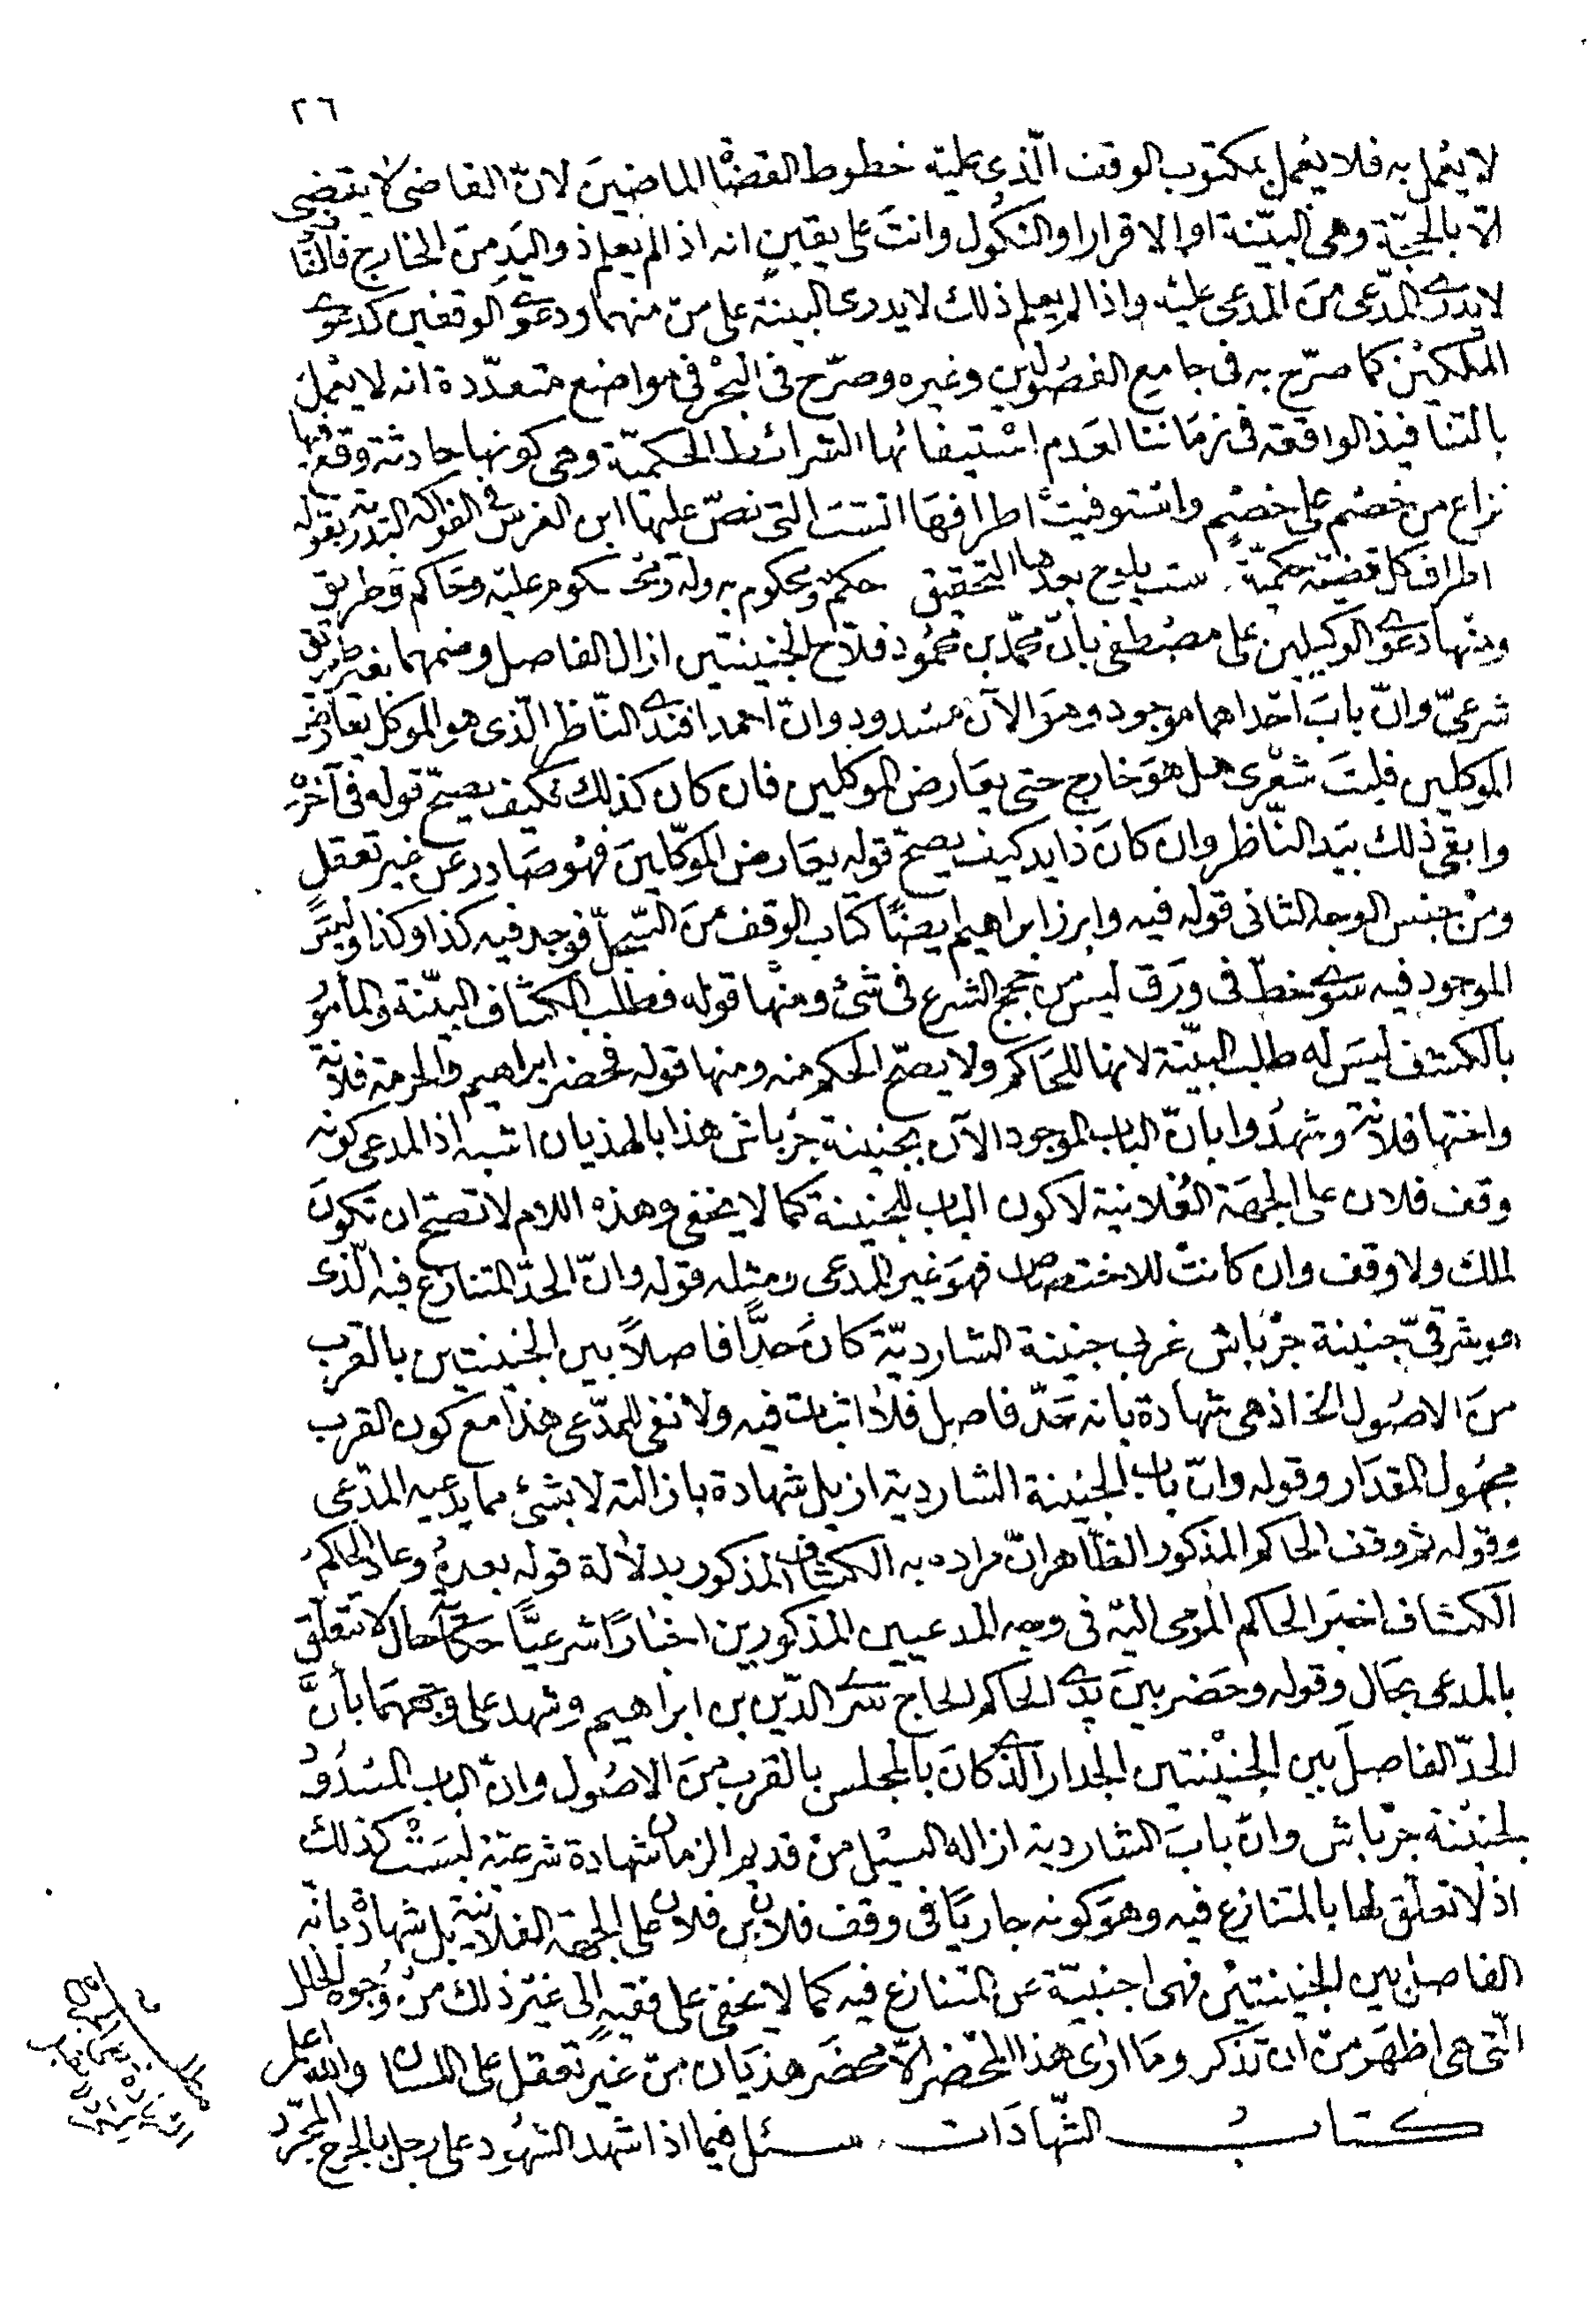 ٢٦
لا يعمل به فلا يعمل بمكتوب الوقف الّذى عليه خطوط القضاة الماضين لانّ القاضى لا يقضى
الّا بالحجّة وهى البيّنة او الاقرار او النكول وانت على يقين انه اذا لم يعلم ذو اليد من الخارج فالقاضى
لا يدرى المدّعى من المدعى عليه واذا لم يعلم ذلك لا يدرى البينة على من منهما ودعوى الوقفين كدعوى
الملكين كما صرّح به فى جامع الفصولين وغيره وصرّح فى البحر فى مواضع متعدّدة انه لا يعمل
بالتنافيذ الواقعة فى زماننا لعدم استيفائها الشرائط الحكميّة وهى كونها حادثة وقع فيها
نزاع من خصم على خصم واستوفيت اطرافها الستّ التى نصّ عليها ابن الغرس فى الفواكه البدرية بقوله
اطراف كل قضيّة حكميّة ست يلوح بعدها التحقيق حكم ومحكوم به وله ومحكوم عليه وحاكم وطريق
ومنها دعوى الوكيلين على مصطفى بانّ محمّد بن محمود فلّاح الجنينتين ازال الفاصل وضمهما بغير طريق
شرعىّ وانّ باب احداهما موجود وهو الآن مسدود وانّ احمد افندى النّاظر الّذى هو الموكل يعارض
الموكلين فليت شعرى هل هو خارج حتى يعارض الموكلين فان كان كذلك فكيف يصحّ قوله فى آخره
وابقى ذلك بيد النّاظر وان كان ذا يد كيف يصحّ قوله يعارض الموكّلين فهو صادر عن غير تعقل
ومن جنس الوجه الثانى قوله فيه وابرز ابراهيم ايضًا كتاب الوقف من السّجلّ فوجد فيه كذا وكذا وليس
الموجود فيه سوى خطّ فى ورق ليس من حجج الشرع فى شئ ومنها قوله فطلب الكشاف البيّنة والمأمور
بالكشف ليس له طلب البيّنة لانها للحاكم ولا يصحّ الحكم منه ومنها قوله فحضر ابراهيم والحرمة فلانة
واختها فلانة وشهدوا بانّ الباب الموجود الآن بجنينة جرباش هذا بالهذيان اشبه اذ المدعى كونه
وقف فلان على الجهة الفلانية لا كون الباب للجنينة كما لا يخفى وهذه اللام لا تصحّ ان تكون
للملك ولا وقف وان كانت للاختصاص فهو غير المدعى ومثله قوله وانّ الحدّ المتنازع فيه الّذى
هو شرقىّ جنينة جرباش غربى جنينة الشارديّة كان حدًّا فاصلًا بين الجنينتين بالقرب
من الاصول الخ اذ هى شهادة بانه حدّ فاصل فلا اثبات فيه ولا نفى للمدّعى هذا مع كون القرب
مجهول المقدار وقوله وانّ باب الجنينة الشاردية ازيل شهادة بازالته لا بشئ مما يدعيه المدّعى
وقوله ثم وقف الحاكم المذكور الظّاهر انّ مراده به الكشاف المذكور بدلالة قوله بعده وعاد الحاكم
الكشاف اخبر الحاكم المومى اليه فى وجه المدعيين المذكورين اخبارًا شرعيًّا حكاية حال لا تتعلّق
بالمدعى بحال وقوله وحضر بين يدى الحاكم الحاج شرّ الدّين بن ابراهيم وشهد على وجههما بأنّ
الحدّ الفاصل بين الجنينتين الجدار الّذى كان بالمجلس بالقرب من الاصول وانّ الباب المسدود
لجنينة جرباش وانّ باب الشاردية ازاله السيل من قديم الزمان شهادة شرعيّة ليست كذلك
اذ لا تعلّق لها بالمتنازع فيه وهو كونه جاريًا فى وقف فلان بن فلان على الجهة الفلانية بل شهادة بانّه
الفاصل بين الجنينتين فهى اجنبيّة عن المتنازع فيه كما لا يخفى على فقيه الى غير ذلك من وجوه الخلل
الّتى هى اظهر من ان تذكر وما ارى هذا المحضر الّا محضر هذيان من غير تعقل على اللسان والله اعلم
كتاب الشّهادات سئل فيما اذا شهد الشهود على رجل بالجرح المجرّد